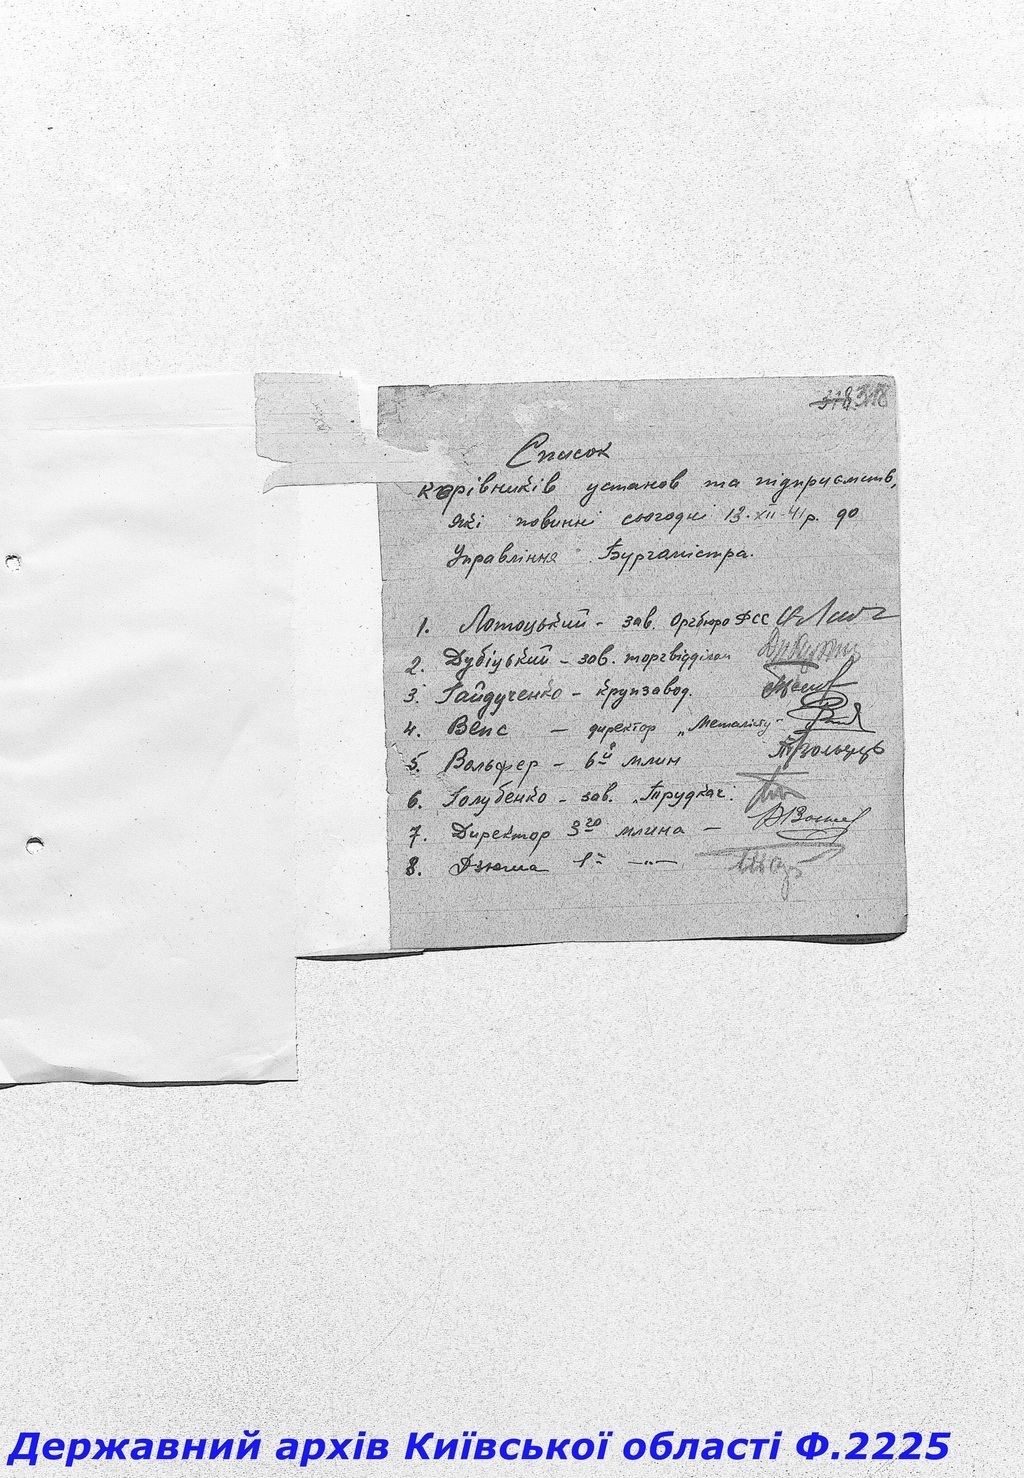 318 318
Список
керівників установ та підприємств,
які повинні сьогодні 13.XII-41 р. до
Управління Бургамістра.
1. Лотоцький - зав. Оргбюро ФСС
2. Дубіцький - зав. торгвідділом
3. Гайдученко - крупзавод.
4. Венс - директор „Металісту"
5. Вольфер - 6й млин
6. Голубенко - зав. „Трудкач".
7. Директор 3го млина -
8. Дзюма 1й -"-
Державний архів Київської області Ф.2225